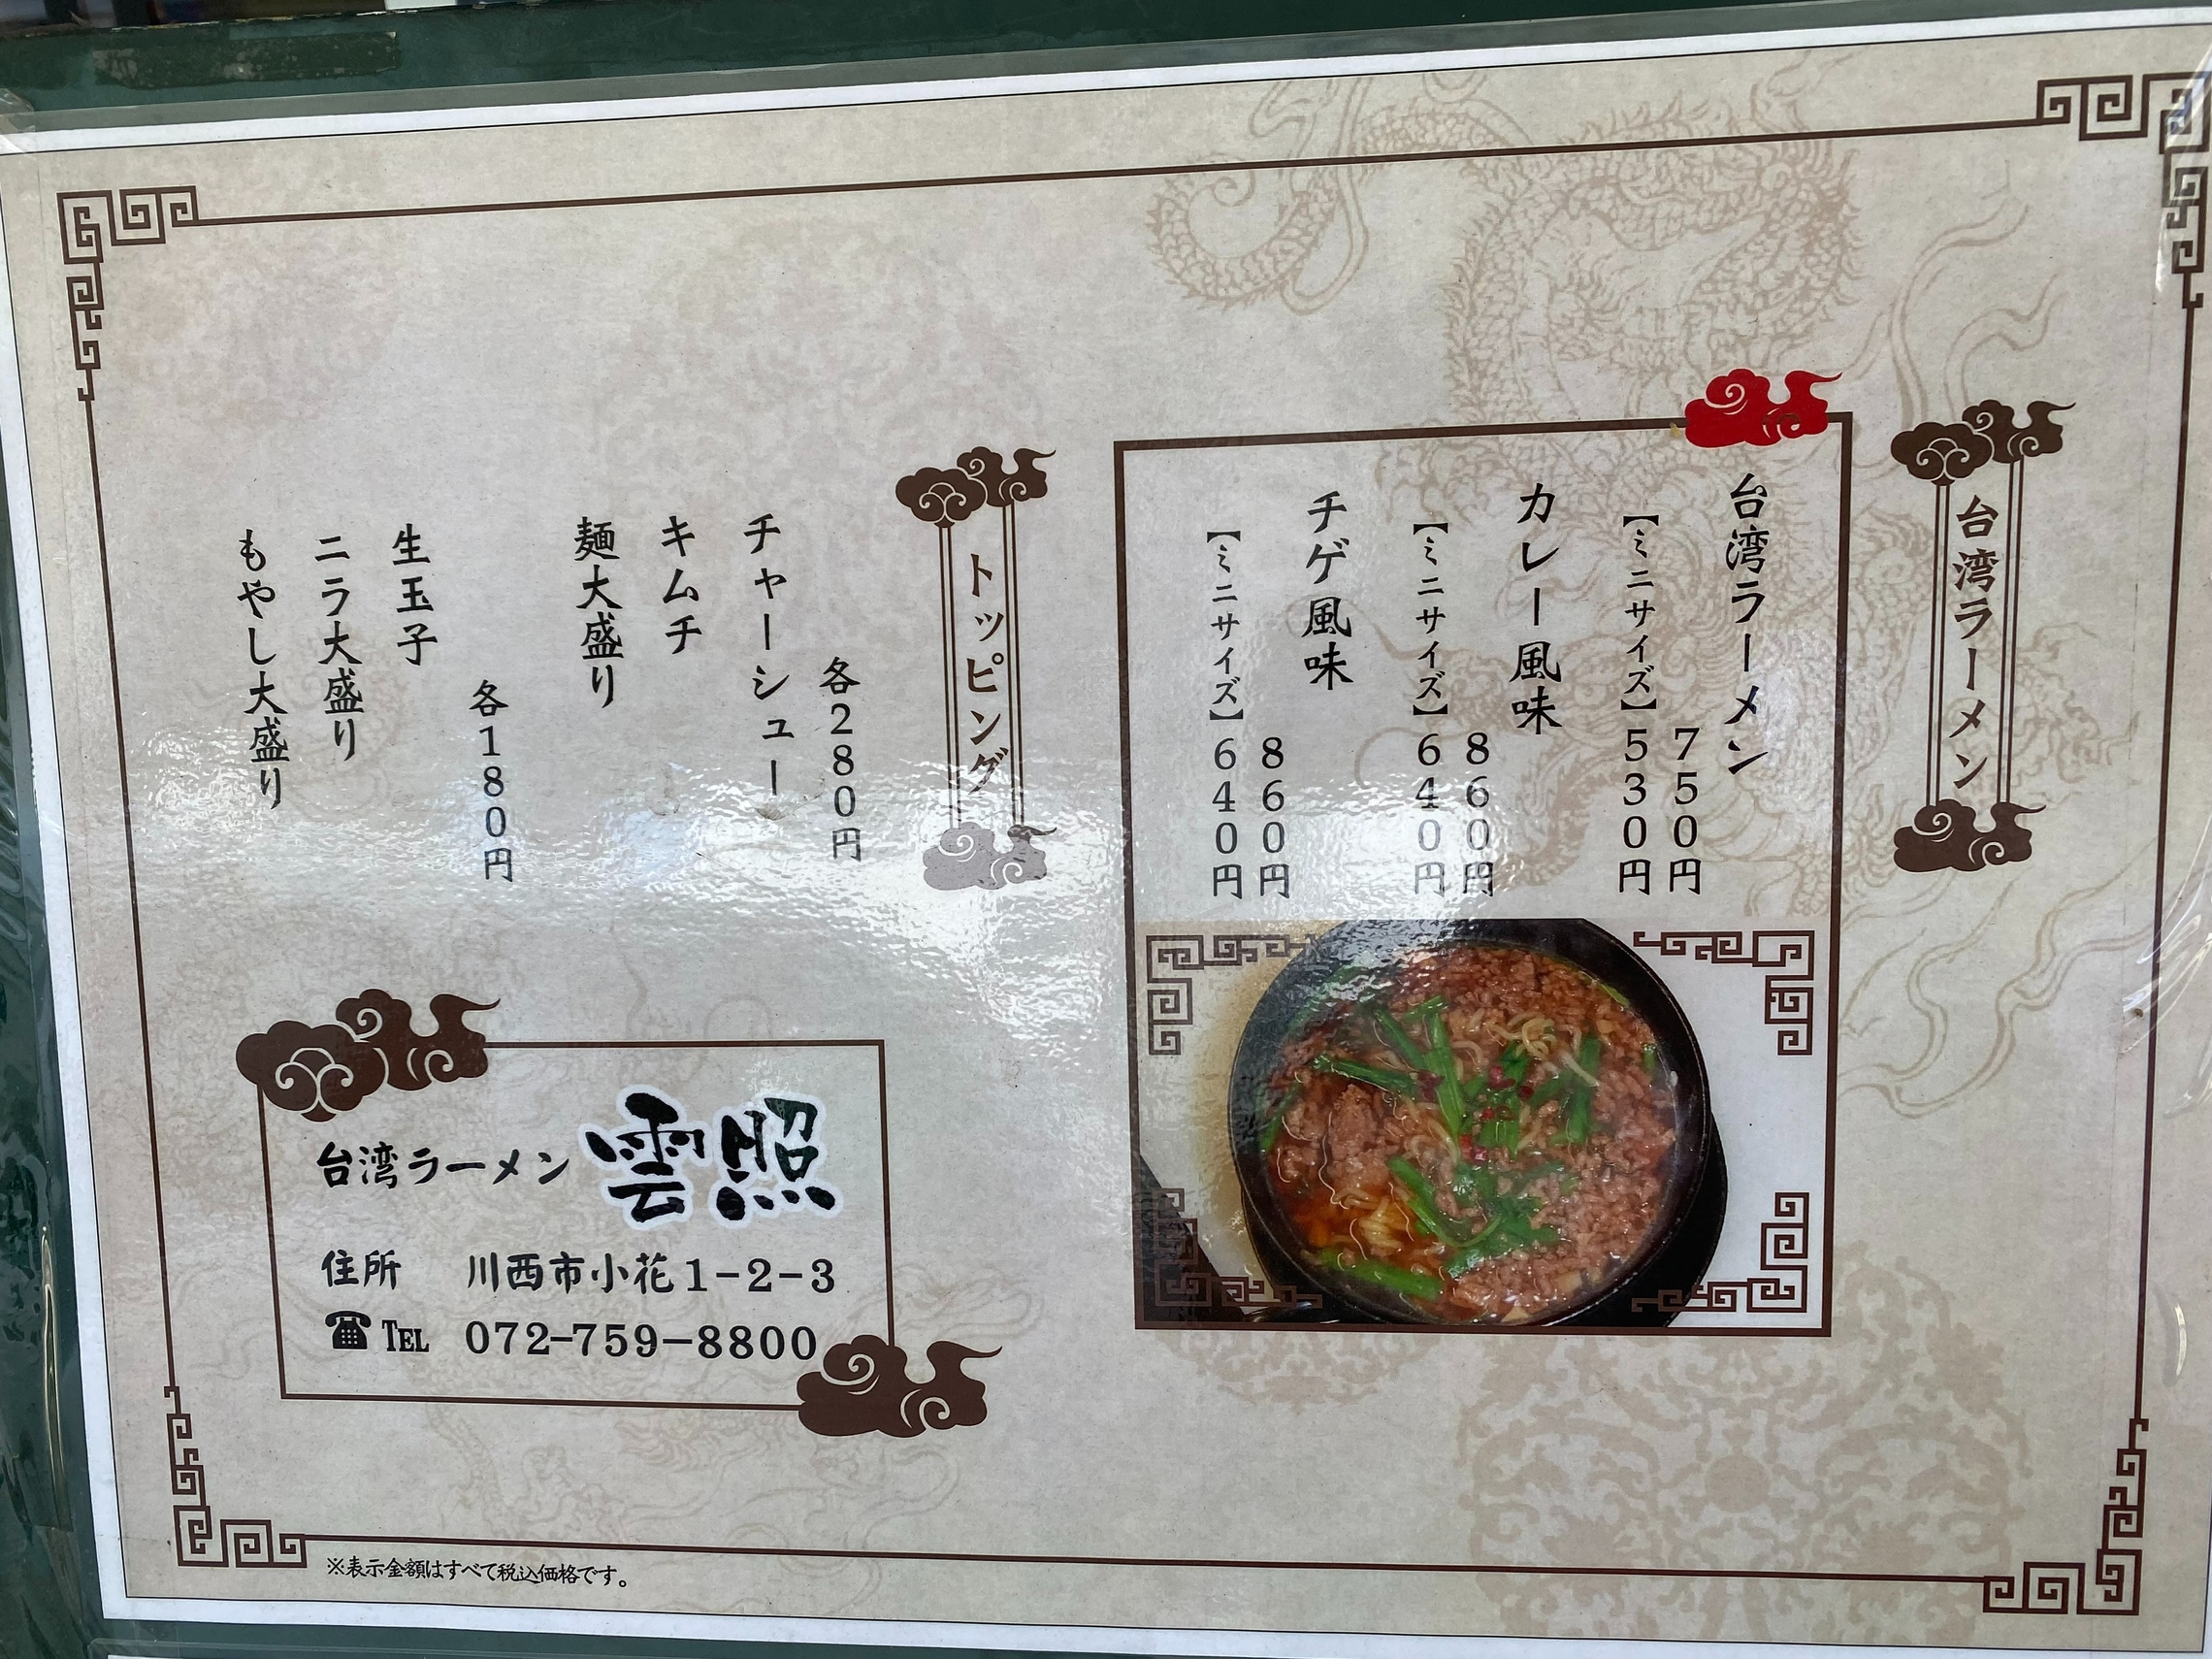 台湾ラーメン
台湾ラーメン
750円
【ミニサイズ】530円
カレー風味
860円
【ミニサイズ】640円
チゲ風味
860円
【ミニサイズ】640円
トッピング
各280円
チャーシュー
キムチ
麺大盛り
各180円
生玉子
ニラ大盛り
もやし大盛り
台湾ラーメン 雲照
住所 川西市小花1-2-3
☎TEL 072-759-8800
※表示金額はすべて税込価格です。